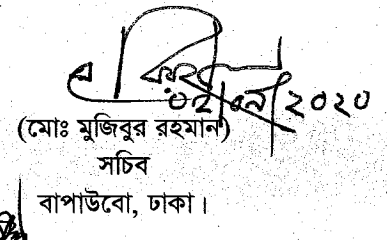 (মোঃ মুজিবুর রহমান)
সচিব
বাপাউবো, ঢাকা।